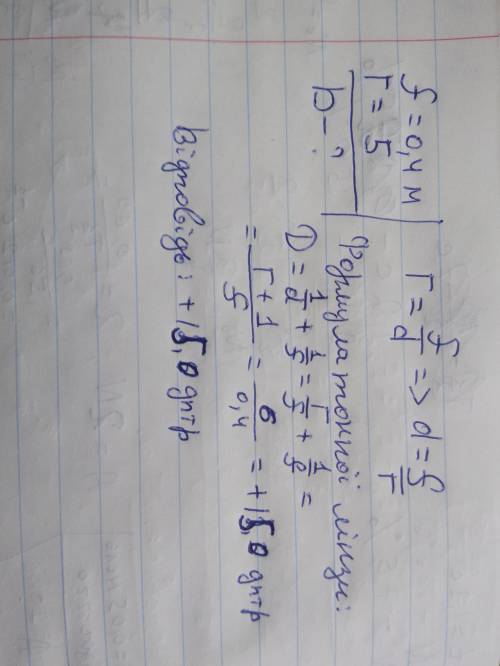 f = 0,4 м
Г = 5
D - ?
Г = f/d => d = f/Г
Формула тонкої лінзи:
D = 1/d + 1/f = Г/f + 1/f =
= Г + 1/f = 6/0,4 = +15,0 дптр
Відповідь: +15,0 дптр